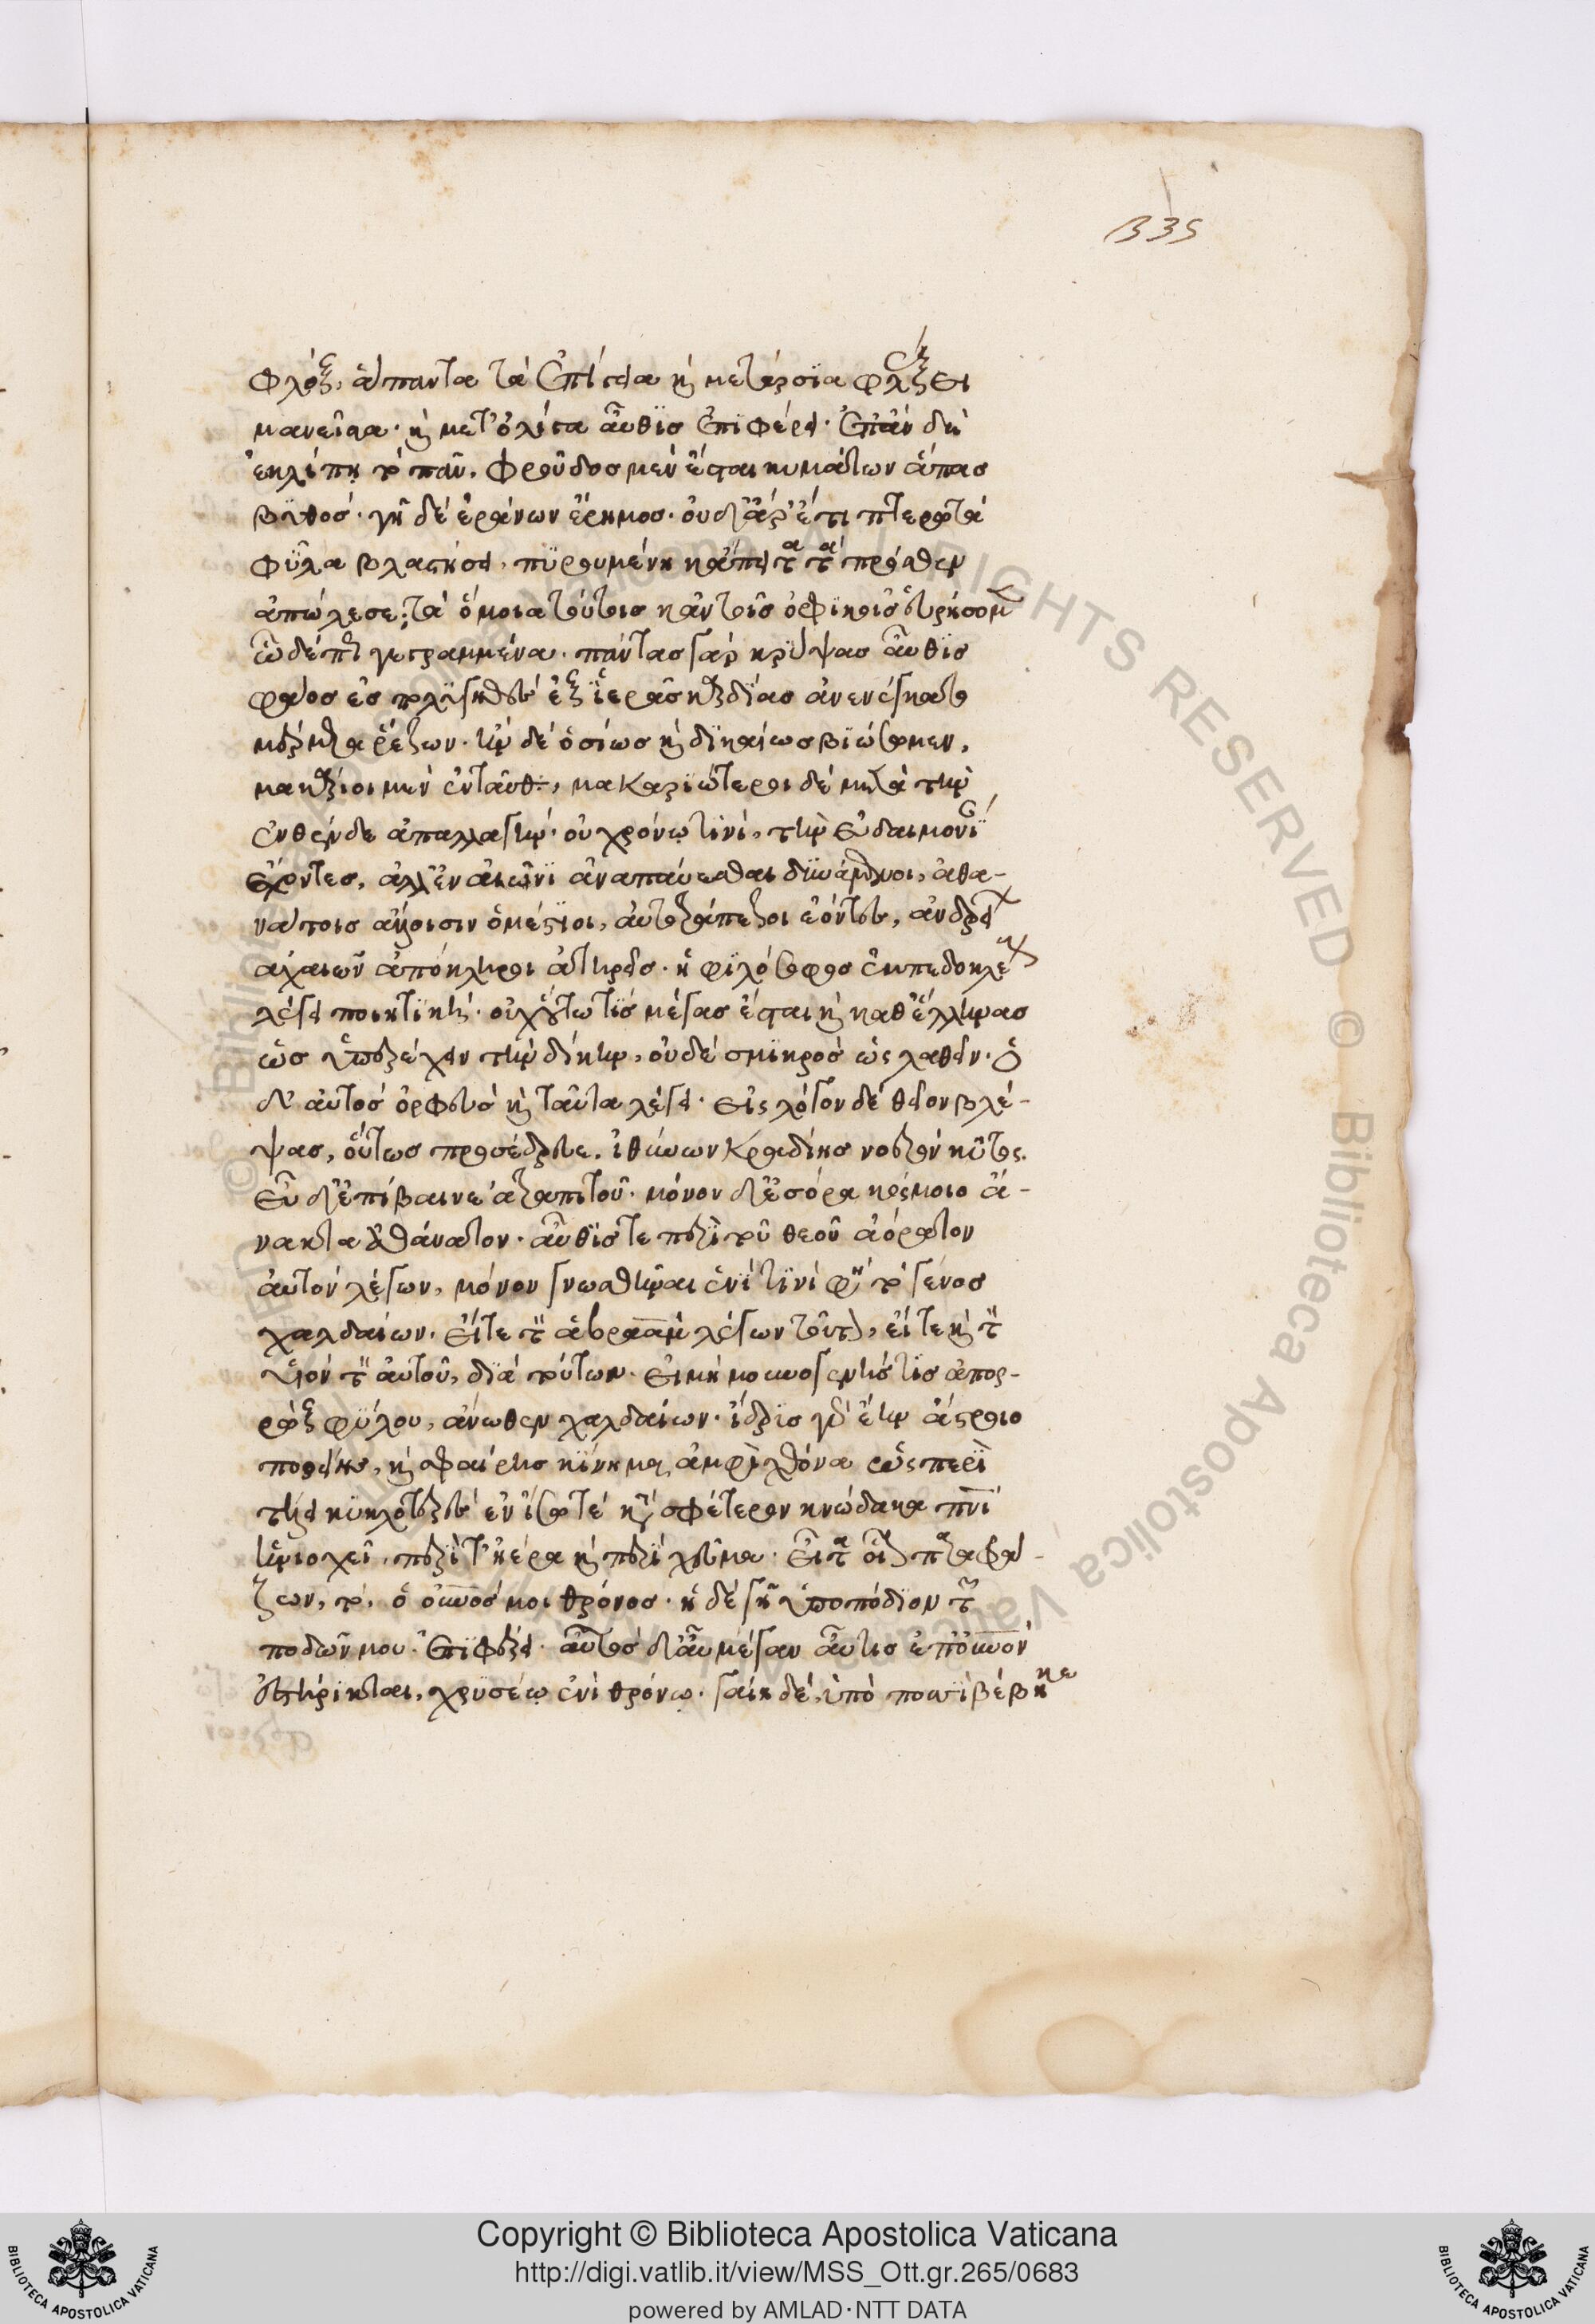 335
φλὸξ, ἅπαντα τἀπίγεια καὶ μετάρσια φλέξει
μανεῖσα· καὶ μετ' ὀλίγα αὖθις ἐπιφέρει· ἐπὰν δὴ
ἐκλίπῃ τὸ πᾶν, φροῦδος μὲν ἔσται κυμάτων ἅπας
βυθός· γῆ δὲ ἑδράνων ἔρημος· οὐδ' ἀὴρ ἔτι πτερωτὰ
φῦλα βλαστήσει πυρουμένη κἄπειτα τὰ πρόσθεν
ἀπώλεσε· τὰ ὅμοια τούτοις κἀν τοῖς ὀρφικοῖς εὑρήσομεν
ὧδέ πη γεγραμμένα· πάντας γὰρ κρύψας αὖθις
φάος ἐς πολυγηθὲς ἐξ ἱερᾶς καρδίας ἀνενέγκατο
μέρμερα ῥέζων· ἢν δὲ ὁσίως καὶ δικαίως βιώσωμεν,
μακάριοι μὲν ἐνταῦθα, μακαριώτεροι δὲ μετὰ τὴν
ἐνθένδε ἀπαλλαγήν· οὐ χρόνῳ τινὶ, τὴν εὐδαιμονίαν
ἔχοντες, ἀλλ' ἐν αἰῶνι ἀναπαύεσθαι δυνάμενοι, ἀθα-
νάτοις ἄλλοισιν ὁμέστιοι, αὐτοτράπεζοι ἐόντες, ἀνδρείων
ἀχαιῶν ἀπόκληροι ἀτηρεῖς· ἡ φιλόσοφος ἐμπεδοκλέους
λέγει ποιητική· οὐχ οὕτω τις μέγας ἔσται καὶ καθ' ἕλληνας
ὡς ὑπερέχειν τὴν δίκην, οὐδὲ σμικρὸς ὡς λαθεῖν· ὁ
δ' αὐτὸς ὀρφεὺς καὶ ταῦτα λέγει· εἰς λόγον δὲ θεῖον βλέ-
ψας, οὕτως προσέδρευε, ἰθύνων κραδίης νοερὸν κύτος.
εὖ δ' ἐπίβαινε ἀτραπιτοῦ· μόνον δ' ἐσόρα κόσμοιο ἄ-
νακτα ἀθάνατον· αὖθίς τε περὶ τοῦ θεοῦ ἀόρατον
αὐτὸν λέγων, μόνον γνωσθῆναι ἑνί τινι φησὶ τὸ γένος
χαλδαίων· εἴτε τὸν ἁβραὰμ λέγων τοῦτον, εἴτε καὶ τὸν
υἱὸν τὸν αὐτοῦ, διὰ τούτων· εἰ μὴ μουνογενής τις ἀποσ-
ρὼξ φύλου, ἄνωθεν χαλδαίων· ἴδρις γὰρ ἔην ἄστροιο
πορείης, καὶ σφαίρης κίνημα, ἀμφὶ χθόνα ὡς περὶ
τῆς κυκλοτερὲς ἐν ἴσῳ τε κατὰ σφέτερον κνώδακα πνεύματι
ἡνιοχεῖ, περί τ' ἠέρα καὶ περὶ χεῦμα· εἶτα οἷον παραφρά-
ζων, τὸ, ὁ οὐρανός μοι θρόνος· ἡ δὲ γῆ ὑποπόδιον τῶν
ποδῶν μου· ἐπιφέρει· αὐτὸς δ' αὖ μέγαν αὖτις ἐπ' οὐρανὸν
ἐστήρικται, χρυσέῳ ἐνὶ θρόνῳ· γαίη δέ, ὑπὸ ποσσὶ βέβηκε
Copyright © Biblioteca Apostolica Vaticana
http://digi.vatlib.it/view/MSS_Ott.gr.265/0683
powered by AMLAD·NTT DATA